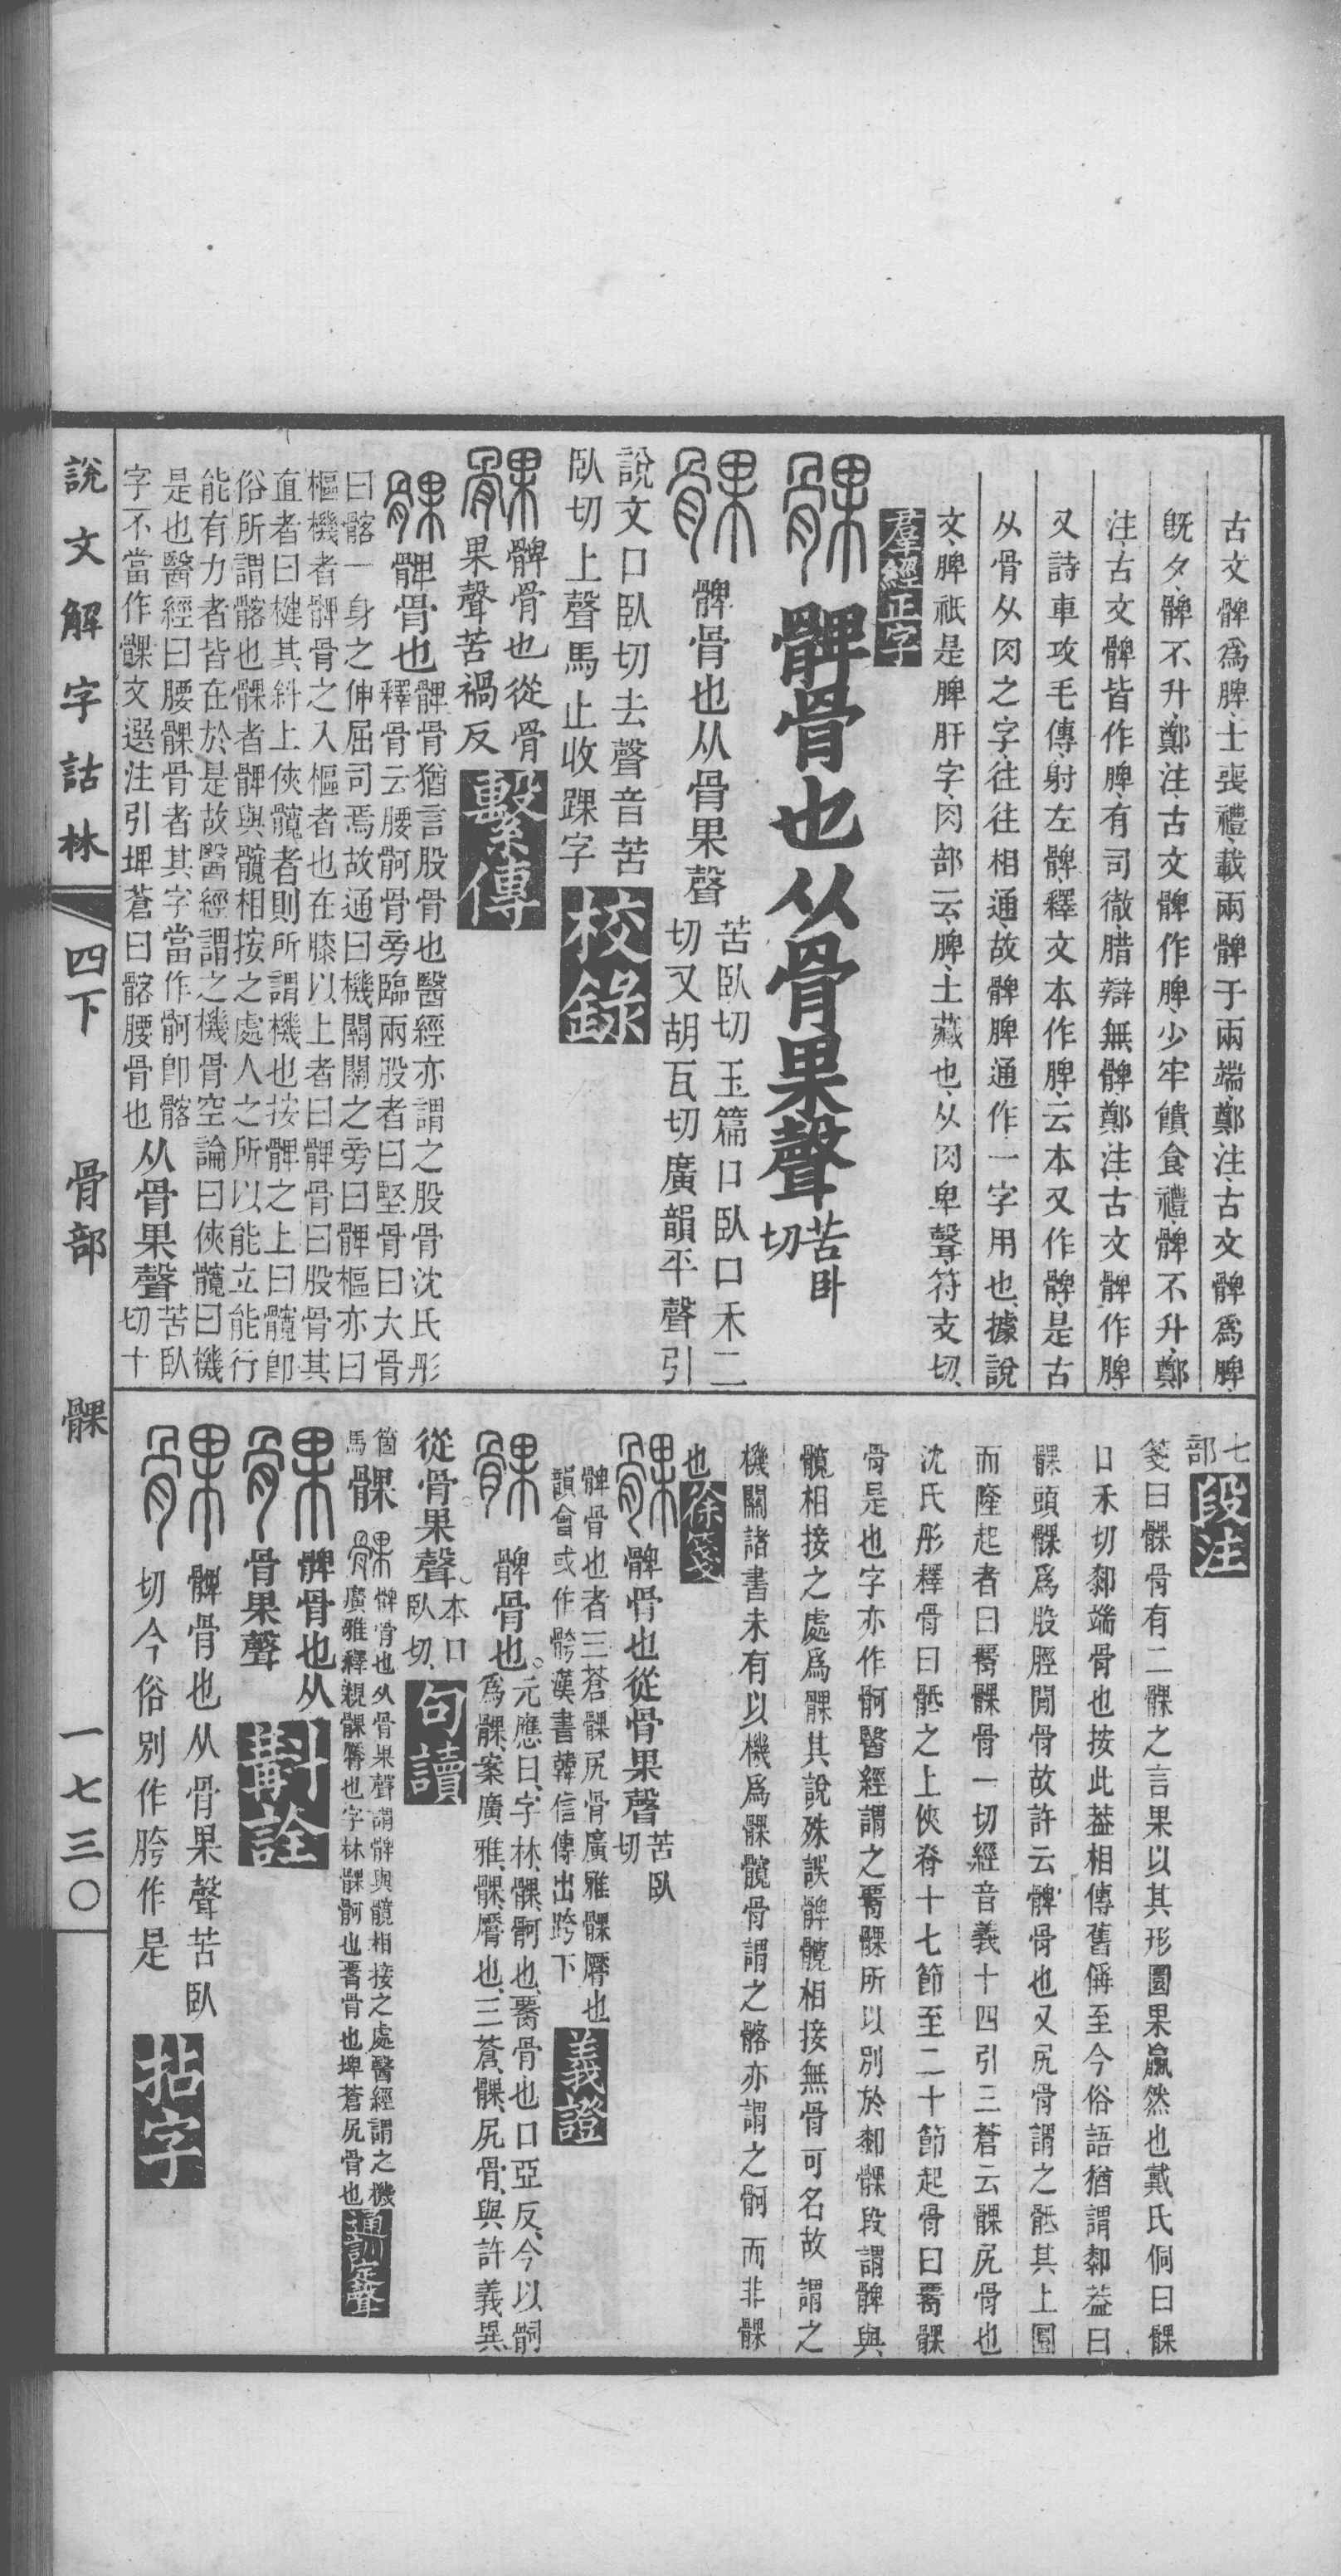 古文髀爲脾、士喪禮、載兩髀于兩端、鄭注、古文髀爲脾、
旣夕、髀不升、鄭注、古文髀作脾、少牢饋食禮、髀不升、鄭
注、古文髀皆作脾、有司徹、腊辯無髀、鄭注、古文髀作脾、
又詩車攻毛傳、射左髀、釋文本作脾、云本又作髀、是古
从骨从肉之字、往往相通、故髀脾通作一字用也、據說
文、脾祇是脾肝字、肉部云、脾、土藏也、从肉卑聲、符支切、
羣經正字
髁 髀骨也从骨果聲苦臥切
髁 髀骨也从骨果聲苦臥切玉篇口臥口禾二
切又胡瓦切廣韻平聲引
說文口臥切去聲音苦
臥切上聲馬止收踝字 校錄
髁 髀骨也從骨
果聲苦禍反 繫傳
髁 髀骨也髀骨猶言股骨也醫經亦謂之股骨沈氏彤
釋骨云腰骬骨旁臨兩股者曰堅骨曰大骨
曰髂一身之伸屈司焉故通曰機關關之旁曰髀樞亦曰
樞機者髀骨之入樞者也在膝以上者曰髀骨曰股骨其
直者曰楗其斜上俠髖者則所謂機也按髀之上曰髖卽
俗所謂髂也髁者髀與髖相按之處人之所以能立能行
能有力者皆在於是故醫經謂之機骨空論曰俠髖曰機
是也醫經曰腰髁骨者其字當作骬卽髂
字不當作髁文選注引埤蒼曰髂腰骨也从骨果聲苦臥
切十
七
部 段注
箋曰髁骨有二髁之言果以其形圜果臝然也戴氏侗曰髁
口禾切厀端骨也按此葢相傳舊偁至今俗語猶謂厀葢曰
髁頭髁爲股脛閒骨故許云髀骨也又尻骨謂之骶其上圜
而隆起者曰髁骨一切經音義十四引三蒼云髁尻骨也
沈氏彤釋骨曰骶之上俠脊十七節至二十節起骨曰髁
骨是也字亦作骬醫經謂之髁所以別於厀髁段謂髀與
髖相接之處爲髁其說殊誤髀髖相接無骨可名故謂之
機關諸書未有以機爲髁髖骨謂之髂亦謂之骬而非髁
也 徐箋
髁 髀骨也從骨果聲苦臥切
髀骨也者三蒼髁尻骨廣雅髁臀也
韻會或作骻漢書韓信傳出跨下 義證
髁 髀骨也。元應曰、字林、髁、骬也、骨也口亞反、今以骬
爲髁、案廣雅、髁、臀也、三蒼、髁、尻骨、與許義異、
從骨果聲。本口臥切、 句讀
箇
馬 髁 髁髀骨也从骨果聲謂髀與髖相接之處醫經謂之機
廣雅釋親髁臀也字林髁骬也骨也埤蒼尻骨也 通訓定聲
髁 髀骨也从
骨果聲 斠詮
髁 髀骨也从骨果聲苦臥
切今俗別作胯作是 拈字
說文解字詁林 四下 骨部 髁 一七三〇